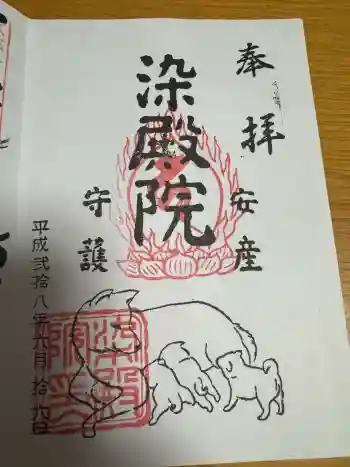 奉拝
安産
染殿院
守護
平成弐拾八年六月拾六日